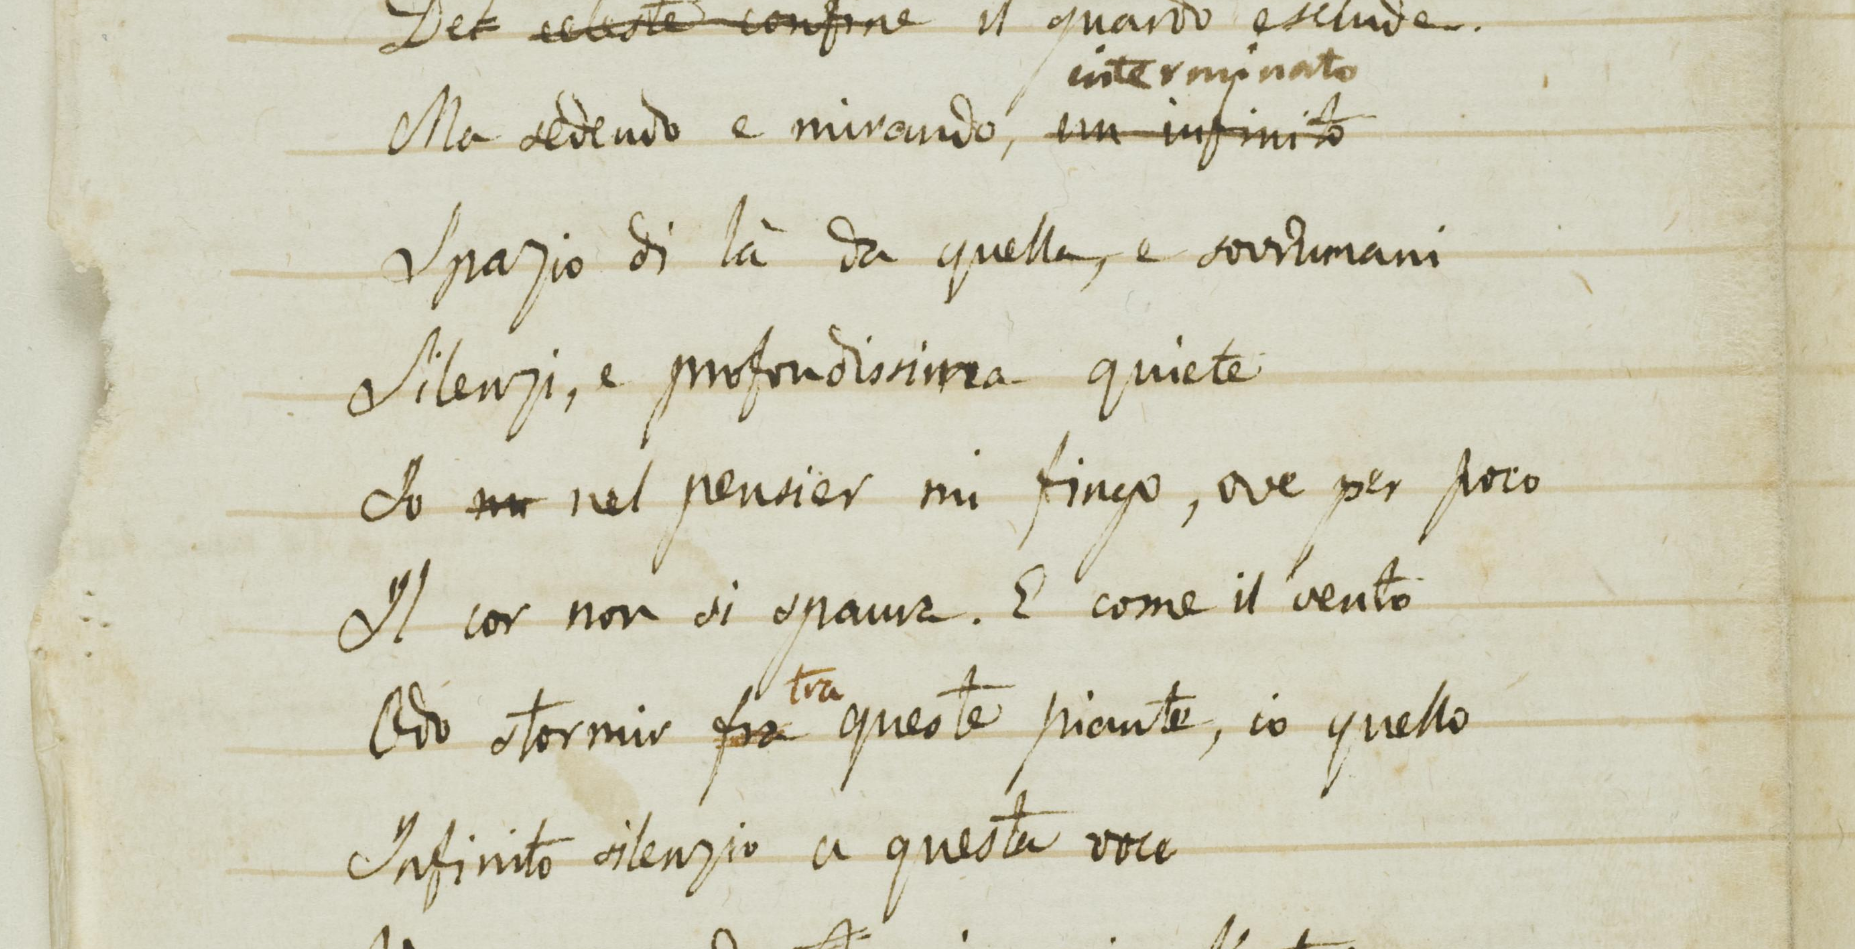 Del celeste confine il guardo esclude.
interminato
Ma sedendo e mirando, un infinito
Spazio di là da quella, e sovrumani
Silenzi, e profondissima quiete
Io nel pensier mi fingo, ove per poco
Il cor non si spaura. E come il vento
tra
Odo stormir fra queste piante, io quello
Infinito silenzio a questa voce